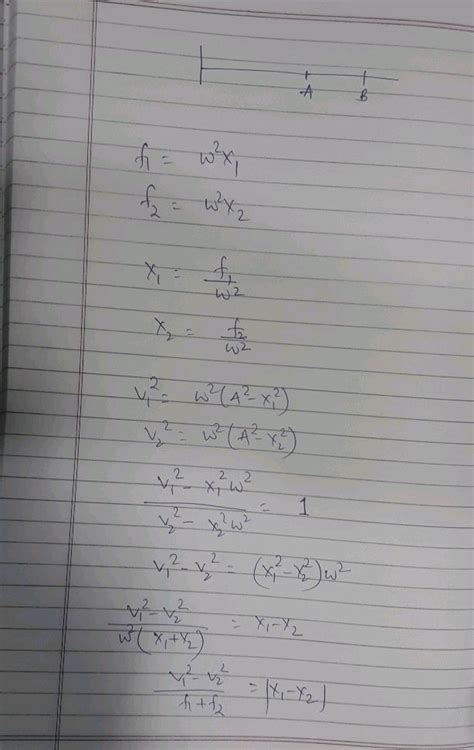 A B
f₁ = ω²x₁
f₂ = ω²x₂
x₁ = f₁/ω²
x₂ = f₂/ω²
v₁² = ω²(A² - x₁²)
v₂² = ω²(A² - x₂²)
(v₁² - x₁²ω²)/(v₂² - x₂²ω²) = 1
v₁² - v₂² = (x₁² - x₂²)ω²
(v₁² - v₂²)/(ω²(x₁ + x₂)) = x₁ - x₂
(v₁² - v₂²)/(f₁ + f₂) = |x₁ - x₂|